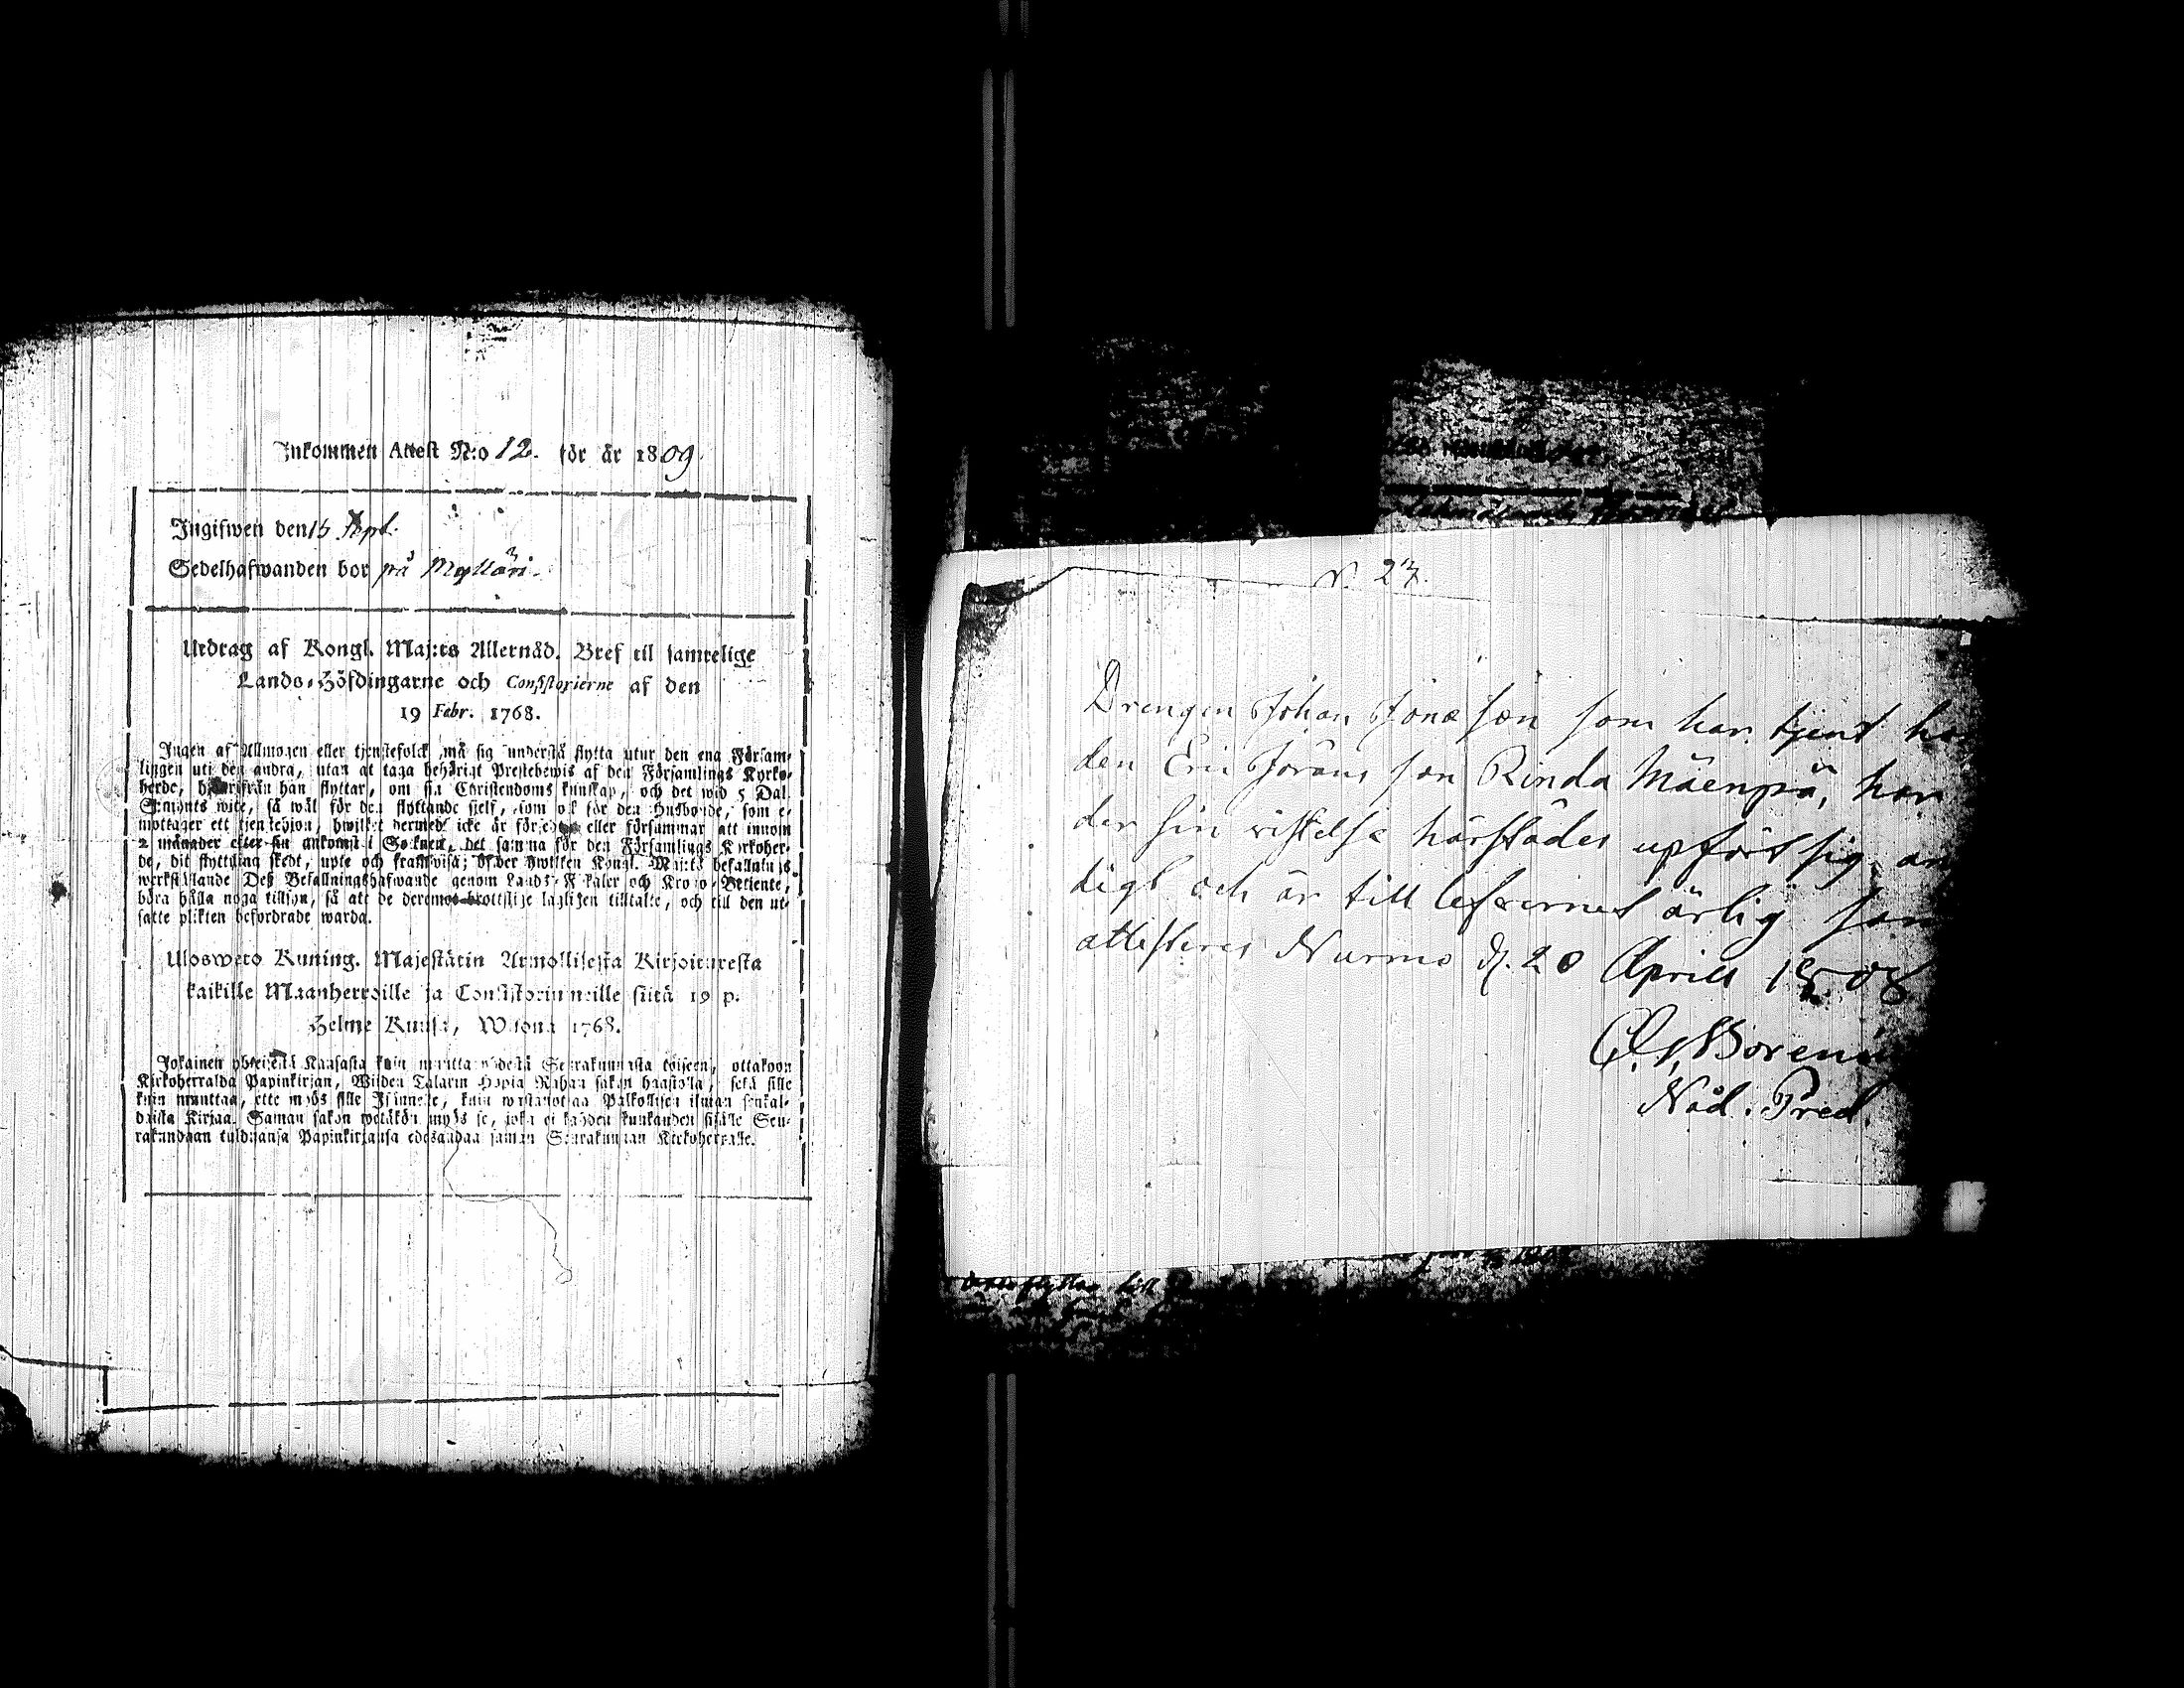 Inkommen Attest N:o 12. för år 1809.
Ingifwen den 15 Sept.
Sedelhafwanden bor på Mylläri.
Utdrag af Kongl. Maj:ts Allernåd. Bref til samtelige
Lands-Höfdingarne och Consistorierne af den
19 Febr. 1768.
Ingen af Allmogen eller tjenstefolck må sig understå flytta utur den ena Försam-
lingen uti den andra, utan at taga behörigt Prestebewis af den Församlings Kyrko-
herde, hwarifrån han flyttar, om sin Christendoms kunskap, och det wid 5 Dal.
S:mynts wite, så wäl för den flyttande sielf, som ock för den Husbonde, som e-
mottager ett tjenstehjon, hwilket dermed icke är försedt eller försummar att innom
2 månader efter sin ankomst i Socknen, det samma för den Församlings Kyrkoher-
de, dit flyttning skedt, upte och framwisa; öfwer hwilken Kongl. Maj:ts befallnings
werkställande Deß Befallningshafwande genom Lands-Fiskaler och Krono-Betiente,
böra hålla noga tillsyn, så att de deremot brottslige lagligen tilltalte, och till den ut-
satte plikten befordrade warda.
Uloswето Kuning. Majestätin Armollisesta Kirjoituresta
kaikille Maanherroille ja Consistoriumeille siitä 19 p.
Helme Kuusa, Wuonna 1768.
Jokainen yhteisestä Kansasta kuin muuttaa yhdestä Seurakunnasta toiseen, ottakoon
Kirkoherralda Papinkirjan, Wijden Talarin Hopia Rahan sakon haastolla, sekä sille
kuin muuttaa, ette myös sille Isännälle, kuin wastanottaa Palkollisen ilman senkal-
daista Kirjaa. Saman sakon wetäkön myös se, joka ei kahden kuukauden sisälle Seu-
rakundaan tulduansa Papinkirjansa edesandaa saman Seurakunnan Kirkoherralle.
N. 23.
Drengen Johan Jonæson som har tjent ho
den Eric Jörans son Rinda Mäenpä, har
der sin vistelse härstädes upfört sig an
digt och är till lefvernet ärlig som
attesteres Nurmo d. 20 Aprill 1808
Nåd. Pred.